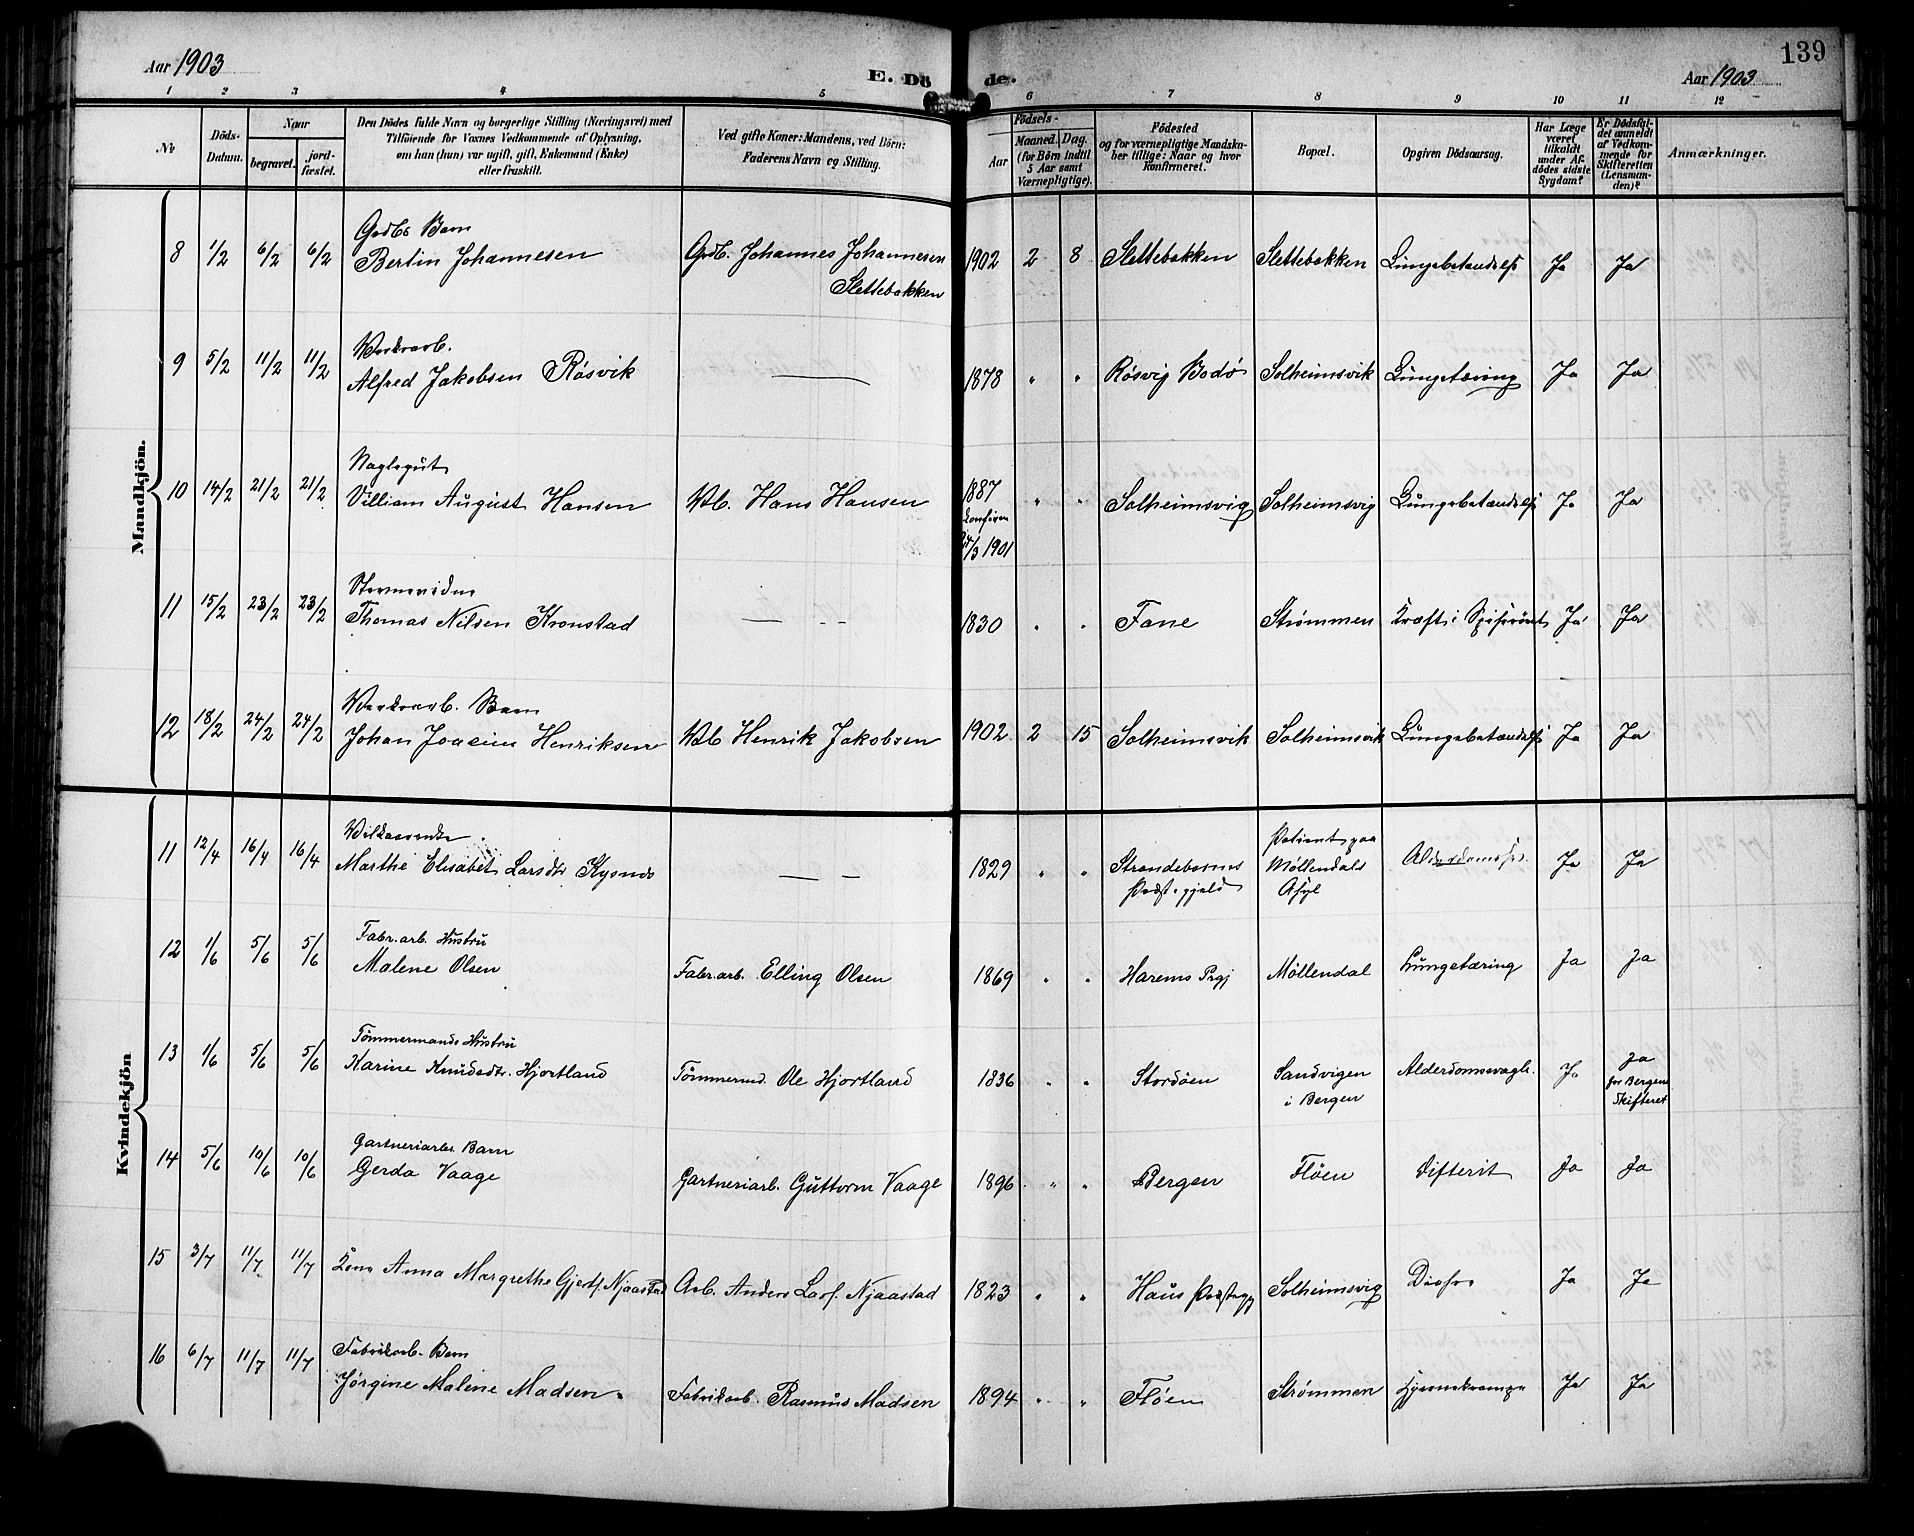 139
Aar 1903
E. Dö de.
Aar 1903
1 2 3 4 5 6 7 8 9 10 11 12
No
Döds-
Datum.
Naar
begravet.
jord-
fæstet.
Den Dödes fulde Navn og borgerlige Stilling (Næringsvei) med
Tilföiende for Voxnes Vedkommende af Oplysning,
om han (hun) var ugift, gift, Enkemand (Enke)
eller fraskilt.
Ved gifte Koner: Mandens, ved Börn:
Faderens Navn og Stilling.
Födsels-
Aar
Maaned.
Dag.
(for Börn indtil
5 Aar samt
Værnepligtige).
Födested
og for værnepligtige Mandska-
ber tillige: Naar og hvor
Konfirmeret.
Bopæl.
Opgiven Dödsaarsag.
Har Læge
været
tilkaldt
under Af-
dödes sidste
Sygdom?
Er Dödsfal-
det anmeldt
af Vedkom-
mende for
Skifteretten
(Lensman-
den)?
Anmærkninger.
Mandkjön.
Grdbs Barn
8 1/2 6/2 6/2 Bertin Johannesen Grdb. Johannes Johannesen 1902 2 8 Slettebakken Slettebakken Lungebetændelse Ja Ja
Slettebakken
Værksarb.
9 5/2 11/2 11/2 Alfred Jakobsen Røsvik — 1878 " " Røsvig Bodø Solheimsvik Lungetæring Ja Ja
Naglegut
10 14/2 21/2 21/2 Villiam August Hansen Vb. Hans Hansen 1887 " " Solheimsvig Solheimsvig Lungebetændelse Ja Ja
/3 1901
11 15/2 23/2 23/2 Thomas Nilsen Kronstad — 1830 " " Fane Strømmen Kræft i Spiserøret Ja Ja
Værksarb. Barn
12 18/2 24/2 24/2 Johan Joacim Henriksen Vb Henrik Jakobsen 1902 2 15 Solheimsvik Solheimsvik Lungebetændelse Ja Ja
Kvindekjön
Vilkaarenke
11 12/4 16/4 16/4 Marthe Elisabet Larsdtr Kysnes — 1829 " " Strandebarms Præstegjeld Patient paa Møllendals Asyl Ja Ja
Fabr.arb. Hustru
12 1/6 5/6 5/6 Malene Olsen Fabr.arb. Elling Olsen 1869 " " Harems Prgj Møllendal Lungetæring Ja Ja
Tömmermands Hustru
13 1/6 5/6 5/6 Karine Knudsdtr. Hjortland Tömmermd. Ole Hjortland 1836 " " Stordöen Sandvigen i Bergen Alderdomssvagh. Ja Ja for Bergens Skifteret
Gartneriarbs Barn
14 5/6 10/6 10/6 Gerda Vaage Gartneriarb. Guttorm Vaage 1896 " " Bergen Flöen Difterit Ja Ja
15 3/7 11/7 11/7 Kone Anna Margrethe Gjertsd. Njaastad Arb. Anders Lars. Njaastad 1823 " " Haus Præstegj Solheimsvig Ja Ja
Fabrikarb. Barn
16 6/7 11/7 11/7 Jørgine Malene Madsen. Fabrikarb. Rasmus Madsen 1894 " " Fløen Strømmen Hjernekrampe Ja Ja